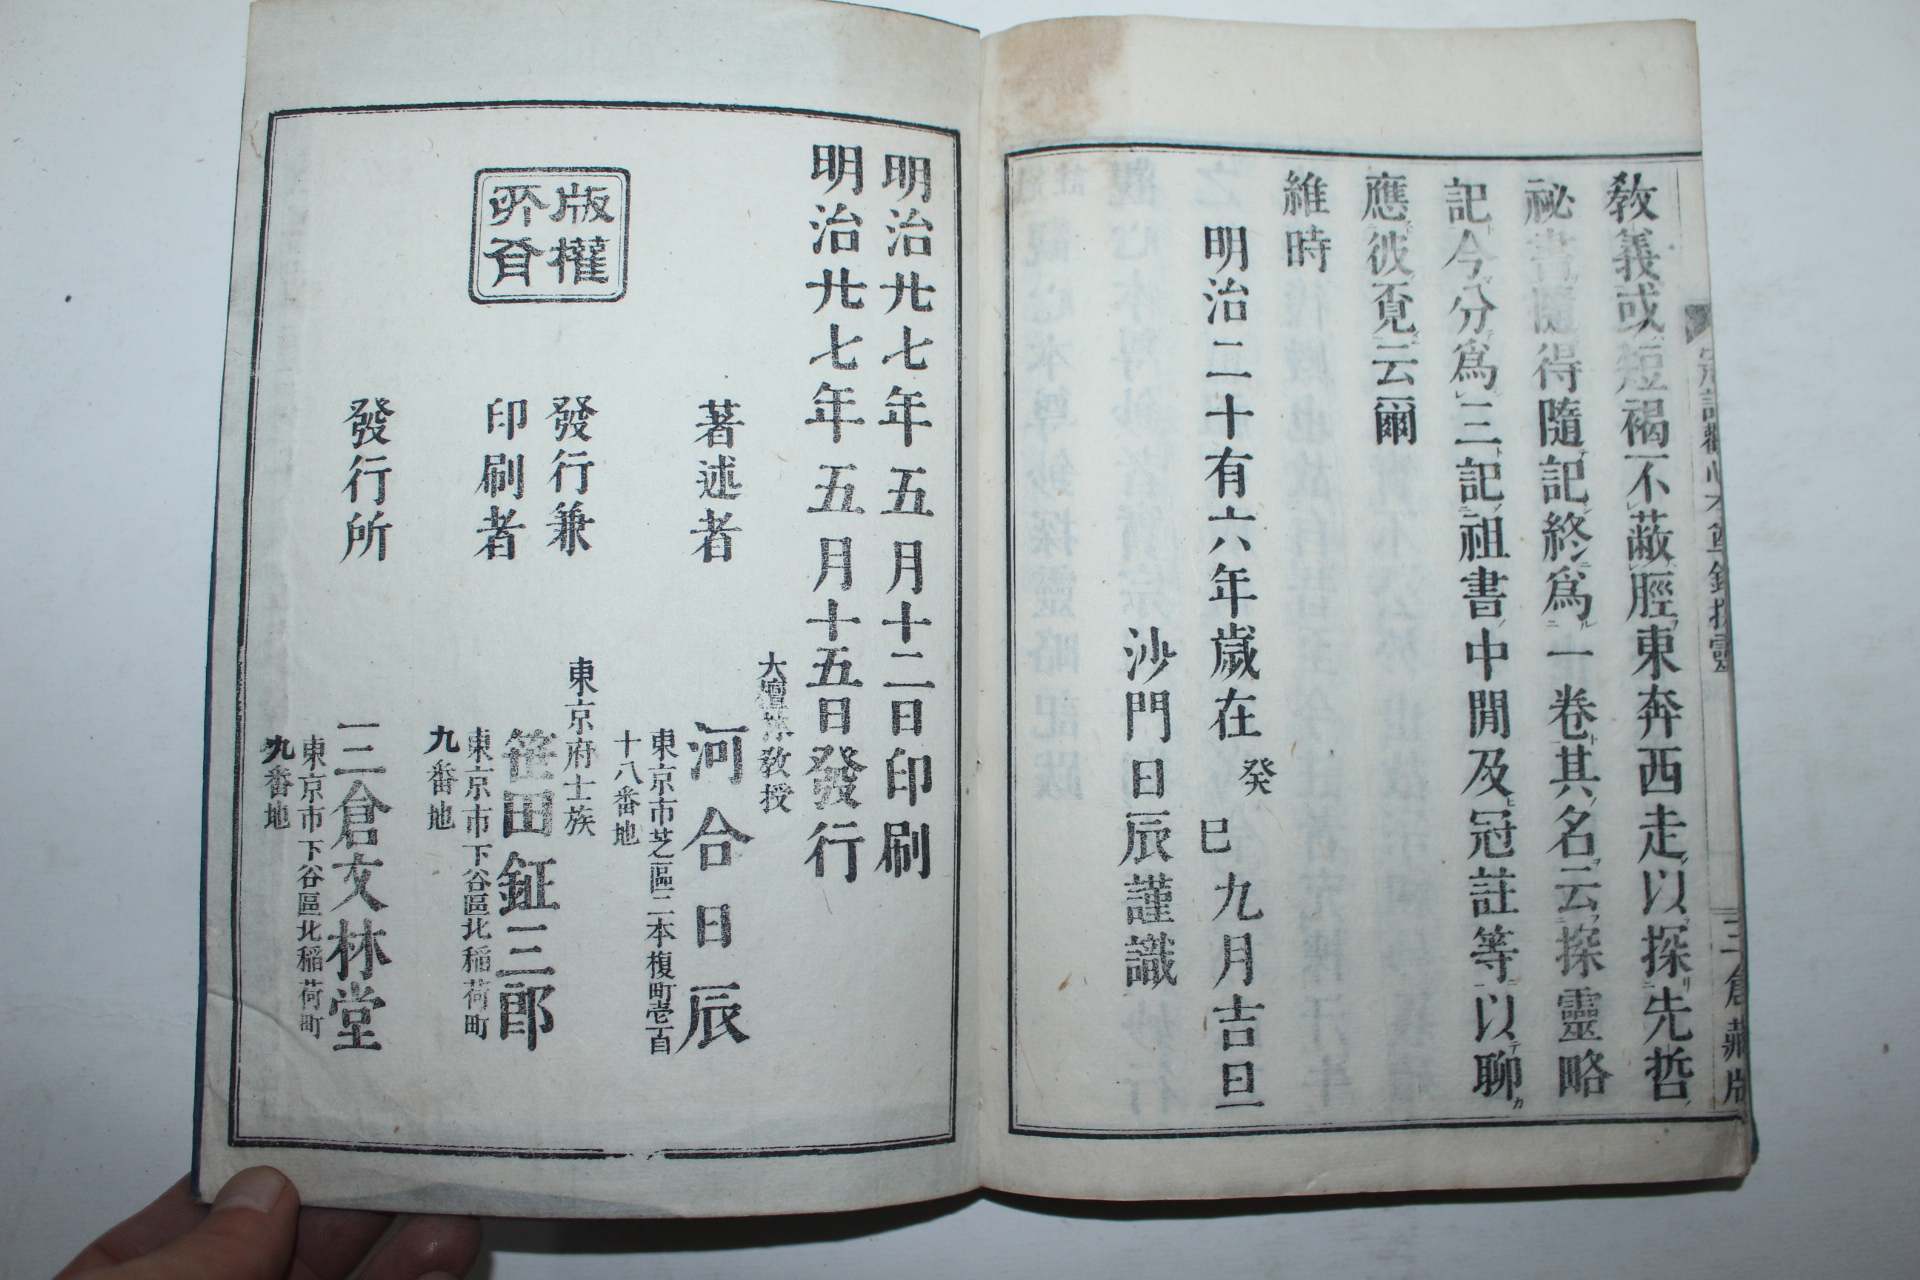 教義或短褐不蔽脛東奔西走以探先哲
祕書隨得隨記終爲一卷其名云探靈略
記今分爲三記祖書中間及冠註等以聊
應彼覓云爾
維時
明治二十有六年歲在癸巳九月吉旦
沙門日辰謹識
三倉藏版
明治廿七年五月十二日印刷
明治廿七年五月十五日發行
大檀林教授
著述者 河合日辰
東京市芝區二本榎町壱百
十八番地
版權
所有
東京府士族
發行兼
印刷者 笹田鉦三郎
東京市下谷區北稲荷町
九番地
發行所 三倉文林堂
東京市下谷區北稲荷町
九番地